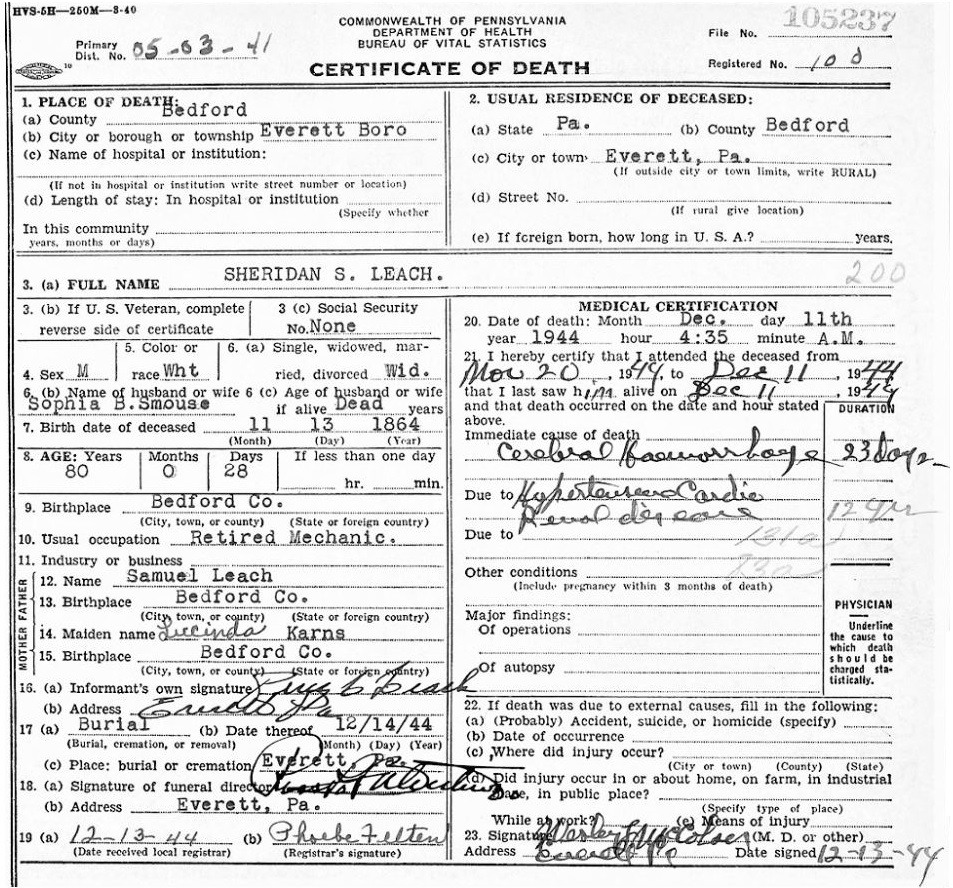 HVS-5H—250M—3-40
COMMONWEALTH OF PENNSYLVANIA
DEPARTMENT OF HEALTH
BUREAU OF VITAL STATISTICS
CERTIFICATE OF DEATH
Primary
Dist. No. 05-03-41
File No. 105237
Registered No. 100
1. PLACE OF DEATH:
(a) County Bedford
(b) City or borough or township Everett Boro
(c) Name of hospital or institution:
(If not in hospital or institution write street number or location)
(d) Length of stay: In hospital or institution
(Specify whether
In this community
years, months or days)
2. USUAL RESIDENCE OF DECEASED:
(a) State Pa. (b) County Bedford
(c) City or town Everett, Pa.
(If outside city or town limits, write RURAL)
(d) Street No.
(If rural give location)
(e) If foreign born, how long in U. S. A.? years.
3. (a) FULL NAME SHERIDAN S. LEACH.
200
3. (b) If U. S. Veteran, complete
reverse side of certificate
3 (c) Social Security
No. None
4. Sex M
5. Color or
race Wht
6. (a) Single, widowed, mar-
ried, divorced Wid.
6. (b) Name of husband or wife
Sophia B. Smouse
6 (c) Age of husband or wife
if alive Dead years
7. Birth date of deceased 11 13 1864
(Month) (Day) (Year)
8. AGE: Years Months Days If less than one day
80 0 28 hr. min.
9. Birthplace Bedford Co.
(City, town, or county) (State or foreign country)
10. Usual occupation Retired Mechanic.
11. Industry or business
FATHER
12. Name Samuel Leach
13. Birthplace Bedford Co.
(City, town, or county) (State or foreign country)
MOTHER
14. Maiden name Lucinda Karns
15. Birthplace Bedford Co.
(City, town, or county) (State or foreign country)
16. (a) Informant's own signature Leach
(b) Address Everett Pa
17 (a) Burial (b) Date thereof 12/14/44
(Burial, cremation, or removal) (Month) (Day) (Year)
(c) Place: burial or cremation Everett, Pa.
18. (a) Signature of funeral director
(b) Address Everett, Pa.
19 (a) 12-13-44 (b) Phoebe Felten
(Date received local registrar) (Registrar's signature)
MEDICAL CERTIFICATION
20. Date of death: Month Dec. day 11th
year 1944 hour 4:35 minute A.M.
21. I hereby certify that I attended the deceased from
Nov 20, 1944, to Dec 11, 1944
that I last saw him alive on Dec 11, 1944
and that death occurred on the date and hour stated
above.
DURATION
Immediate cause of death
Cerebral haemorrhage 23 days
Due to Hypertensive Cardio
Renal disease 12 yr
Due to
131a
Other conditions
(Include pregnancy within 3 months of death)
Major findings:
Of operations
Of autopsy
PHYSICIAN
Underline
the cause to
which death
should be
charged sta-
tistically.
22. If death was due to external causes, fill in the following:
(a) (Probably) Accident, suicide, or homicide (specify)
(b) Date of occurrence
(c) Where did injury occur?
(City or town) (County) (State)
(d) Did injury occur in or about home, on farm, in industrial
place, in public place?
(Specify type of place)
While at work? (e) Means of injury
23. Signature Wesley (M. D. or other)
Address Everett Pa Date signed 12-13-44